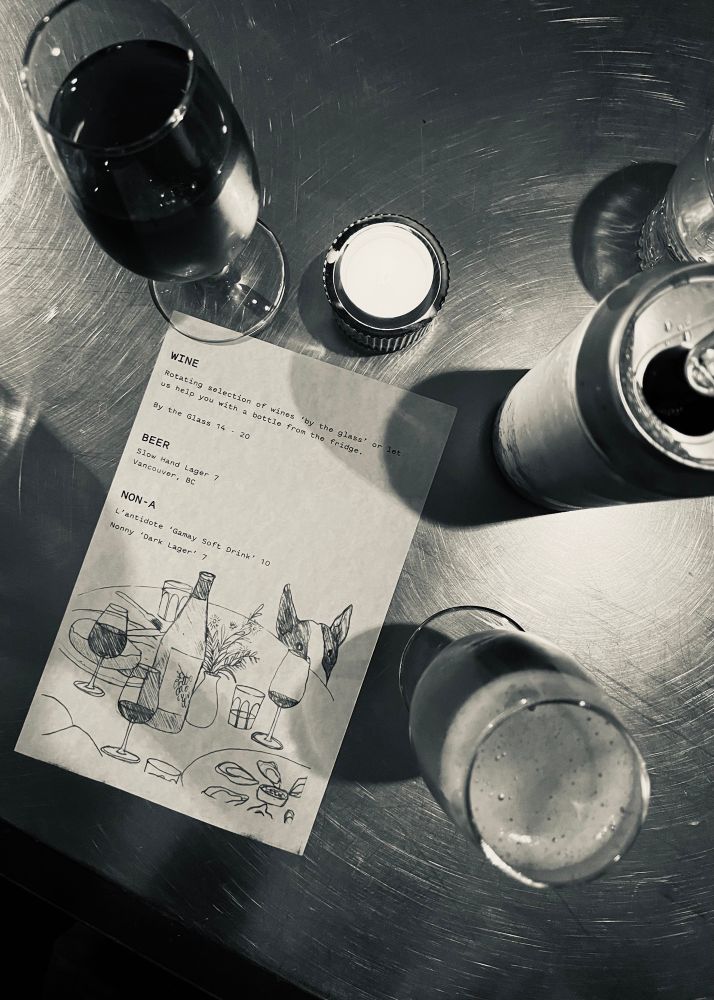 WINE
Rotating selection of wines 'by the glass' or let
us help you with a bottle from the fridge.
By the Glass 14 - 20
BEER
Slow Hand Lager 7
Vancouver, BC
NON-A
L'antidote 'Gamay Soft Drink' 10
Nonny 'Dark Lager' 7